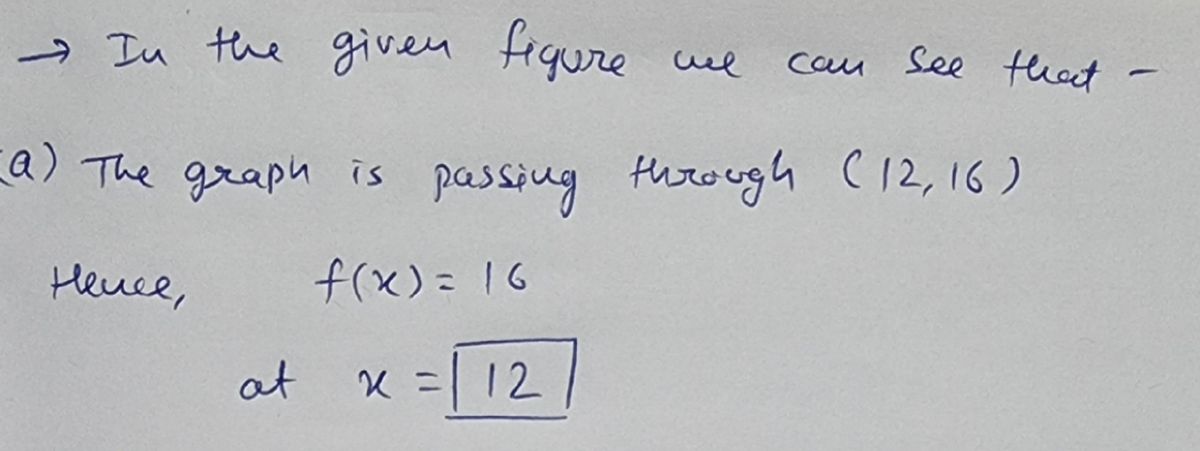 → In the given figure we can see that -
(a) The graph is passing through (12, 16)
Hence, f(x) = 16
at x = 12